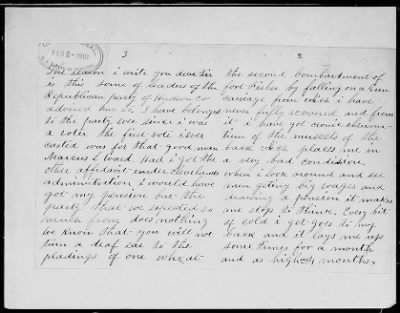 FEB 2- 1901
3
The reason i write you dear sir
is this some of leaders of the
Republican party of Hudson Co
advised me to. I have belonged
to the party ever since i was
a voter the first vote i ever
casted was for that good man
Marcus L Ward. Had i got the
other affadavit under clevelands
administration i would have
got my pension but the
party that we expected so
much from does nothing
We know that you will not
turn a deaf ear to the
pleadings of one who at
2
the second bombardment of
fort Fisher by falling on a Gun
carriage from wich i have
never fully recovered, and from
it i have got cronic
tism of the mussels of the
back wich places me in
a very bad condision.
when i look around and see
men geting big wages and
drawing a pension it makes
me stop to think. Every bit
of cold i get goes to my
back and it lays me up
some times for a month
and as high as months